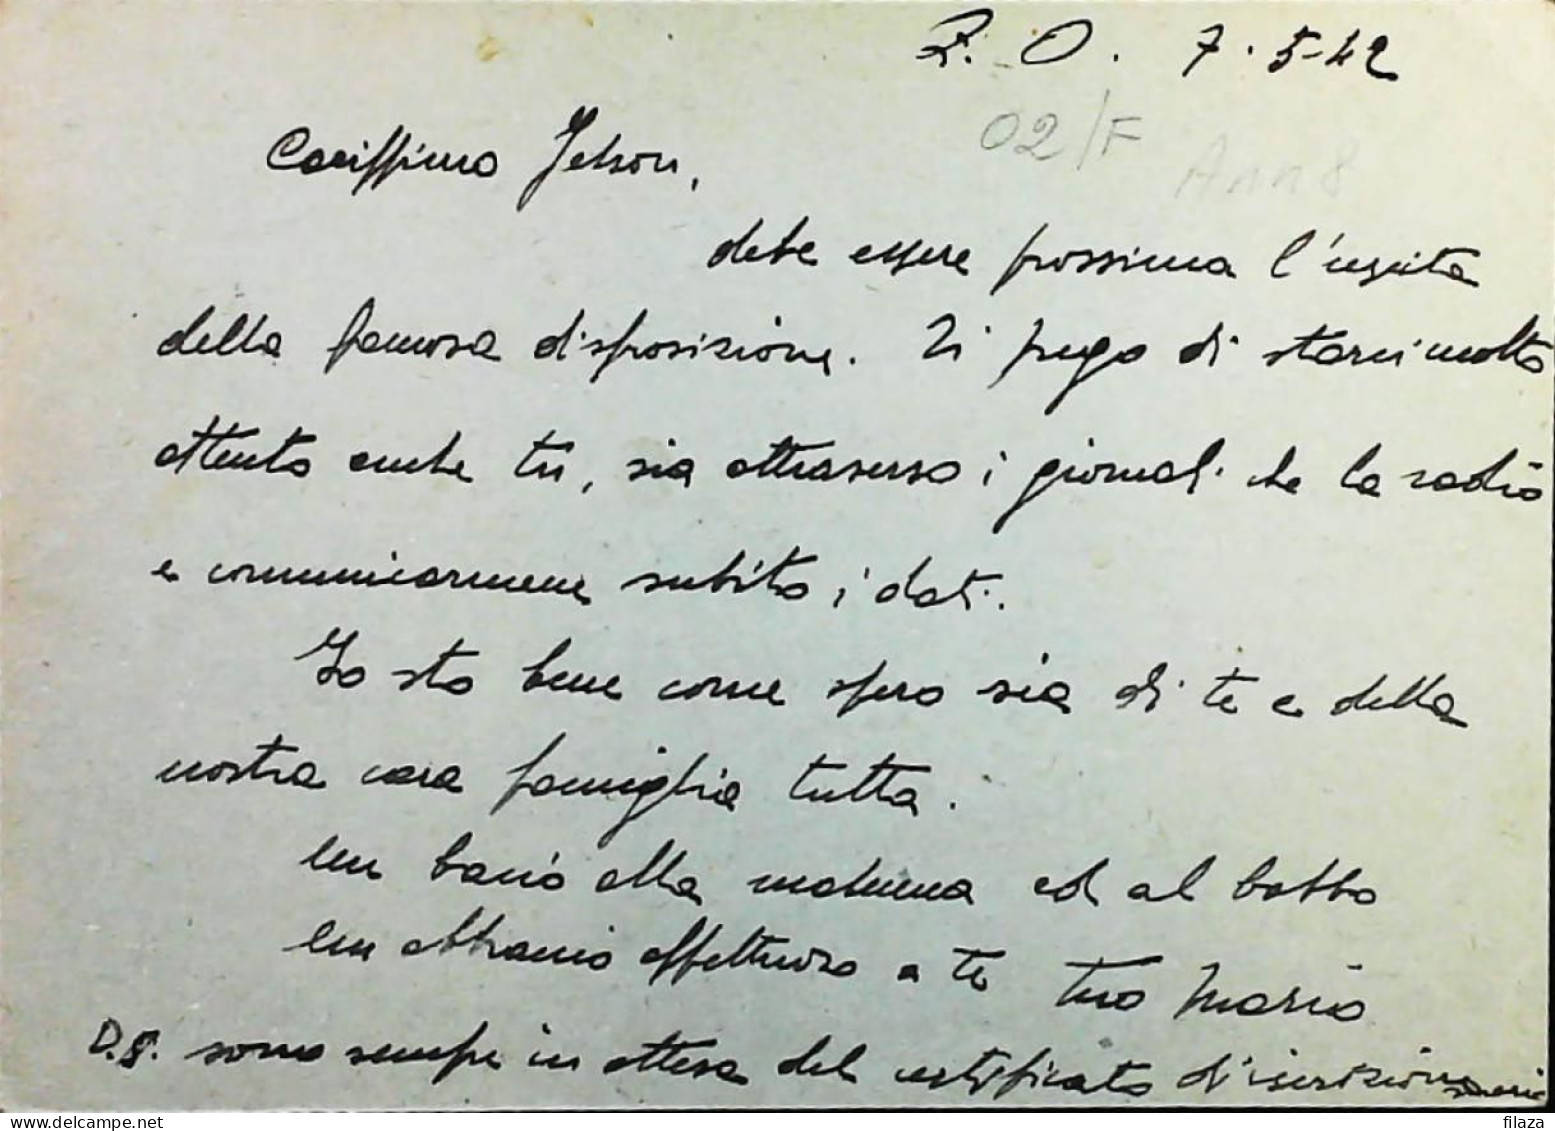 Z. O. 7.5-42
02/F
Carissimo Jelson,
debe essere prossima l'uscita
della famosa disposizione. Ti prego di starci molto
attento anche tu, sia attraverso i giornali che la radio
e comunicarmene subito i dati.
Io sto bene come spero sia di te e della
nostra cara famiglia tutta.
Un bacio alla mamma ed al babbo
Un abbraccio affettuoso a te tuo Mario
D.S. sono sempre in attesa del certificato d'iscrizione
Mario
filaza
delcampe.net